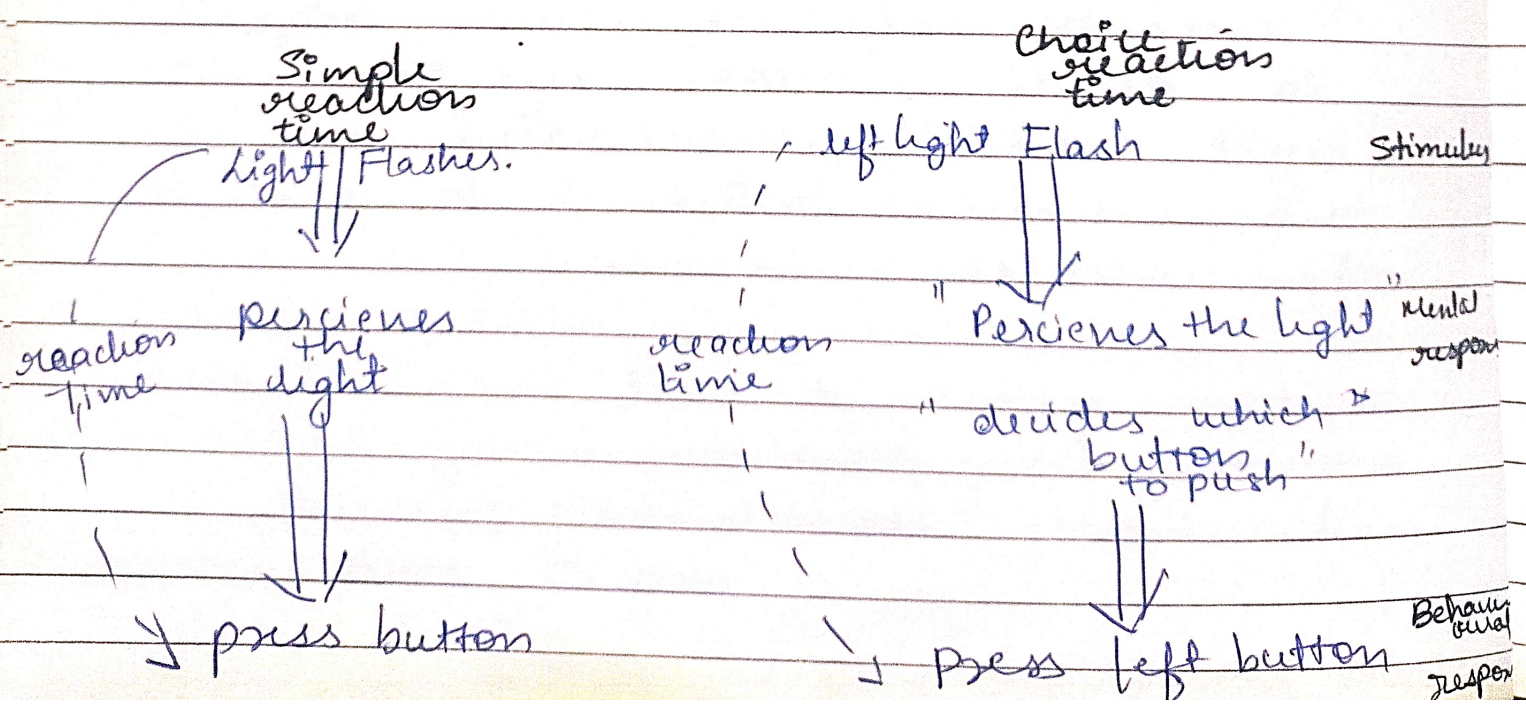 Simple
reaction
time
Light Flashes.
reaction
time
percieves
the
light
press button
Choice
reaction
time
left light Flash
reaction
time
" Percieves the light "
" decides which "
button
to push "
press left button
Stimulus
Mental
respon
Behavi
oural
respon